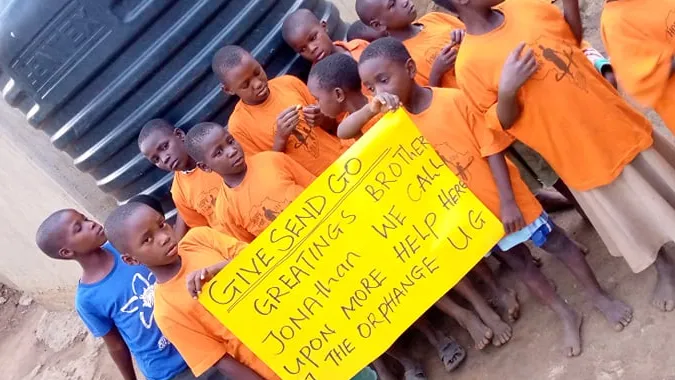 GIVE SEND GO
GREATINGS BROTHER
JONAthan WE CALL
UPON MORE HELP HERE
THE ORPHANGE UG